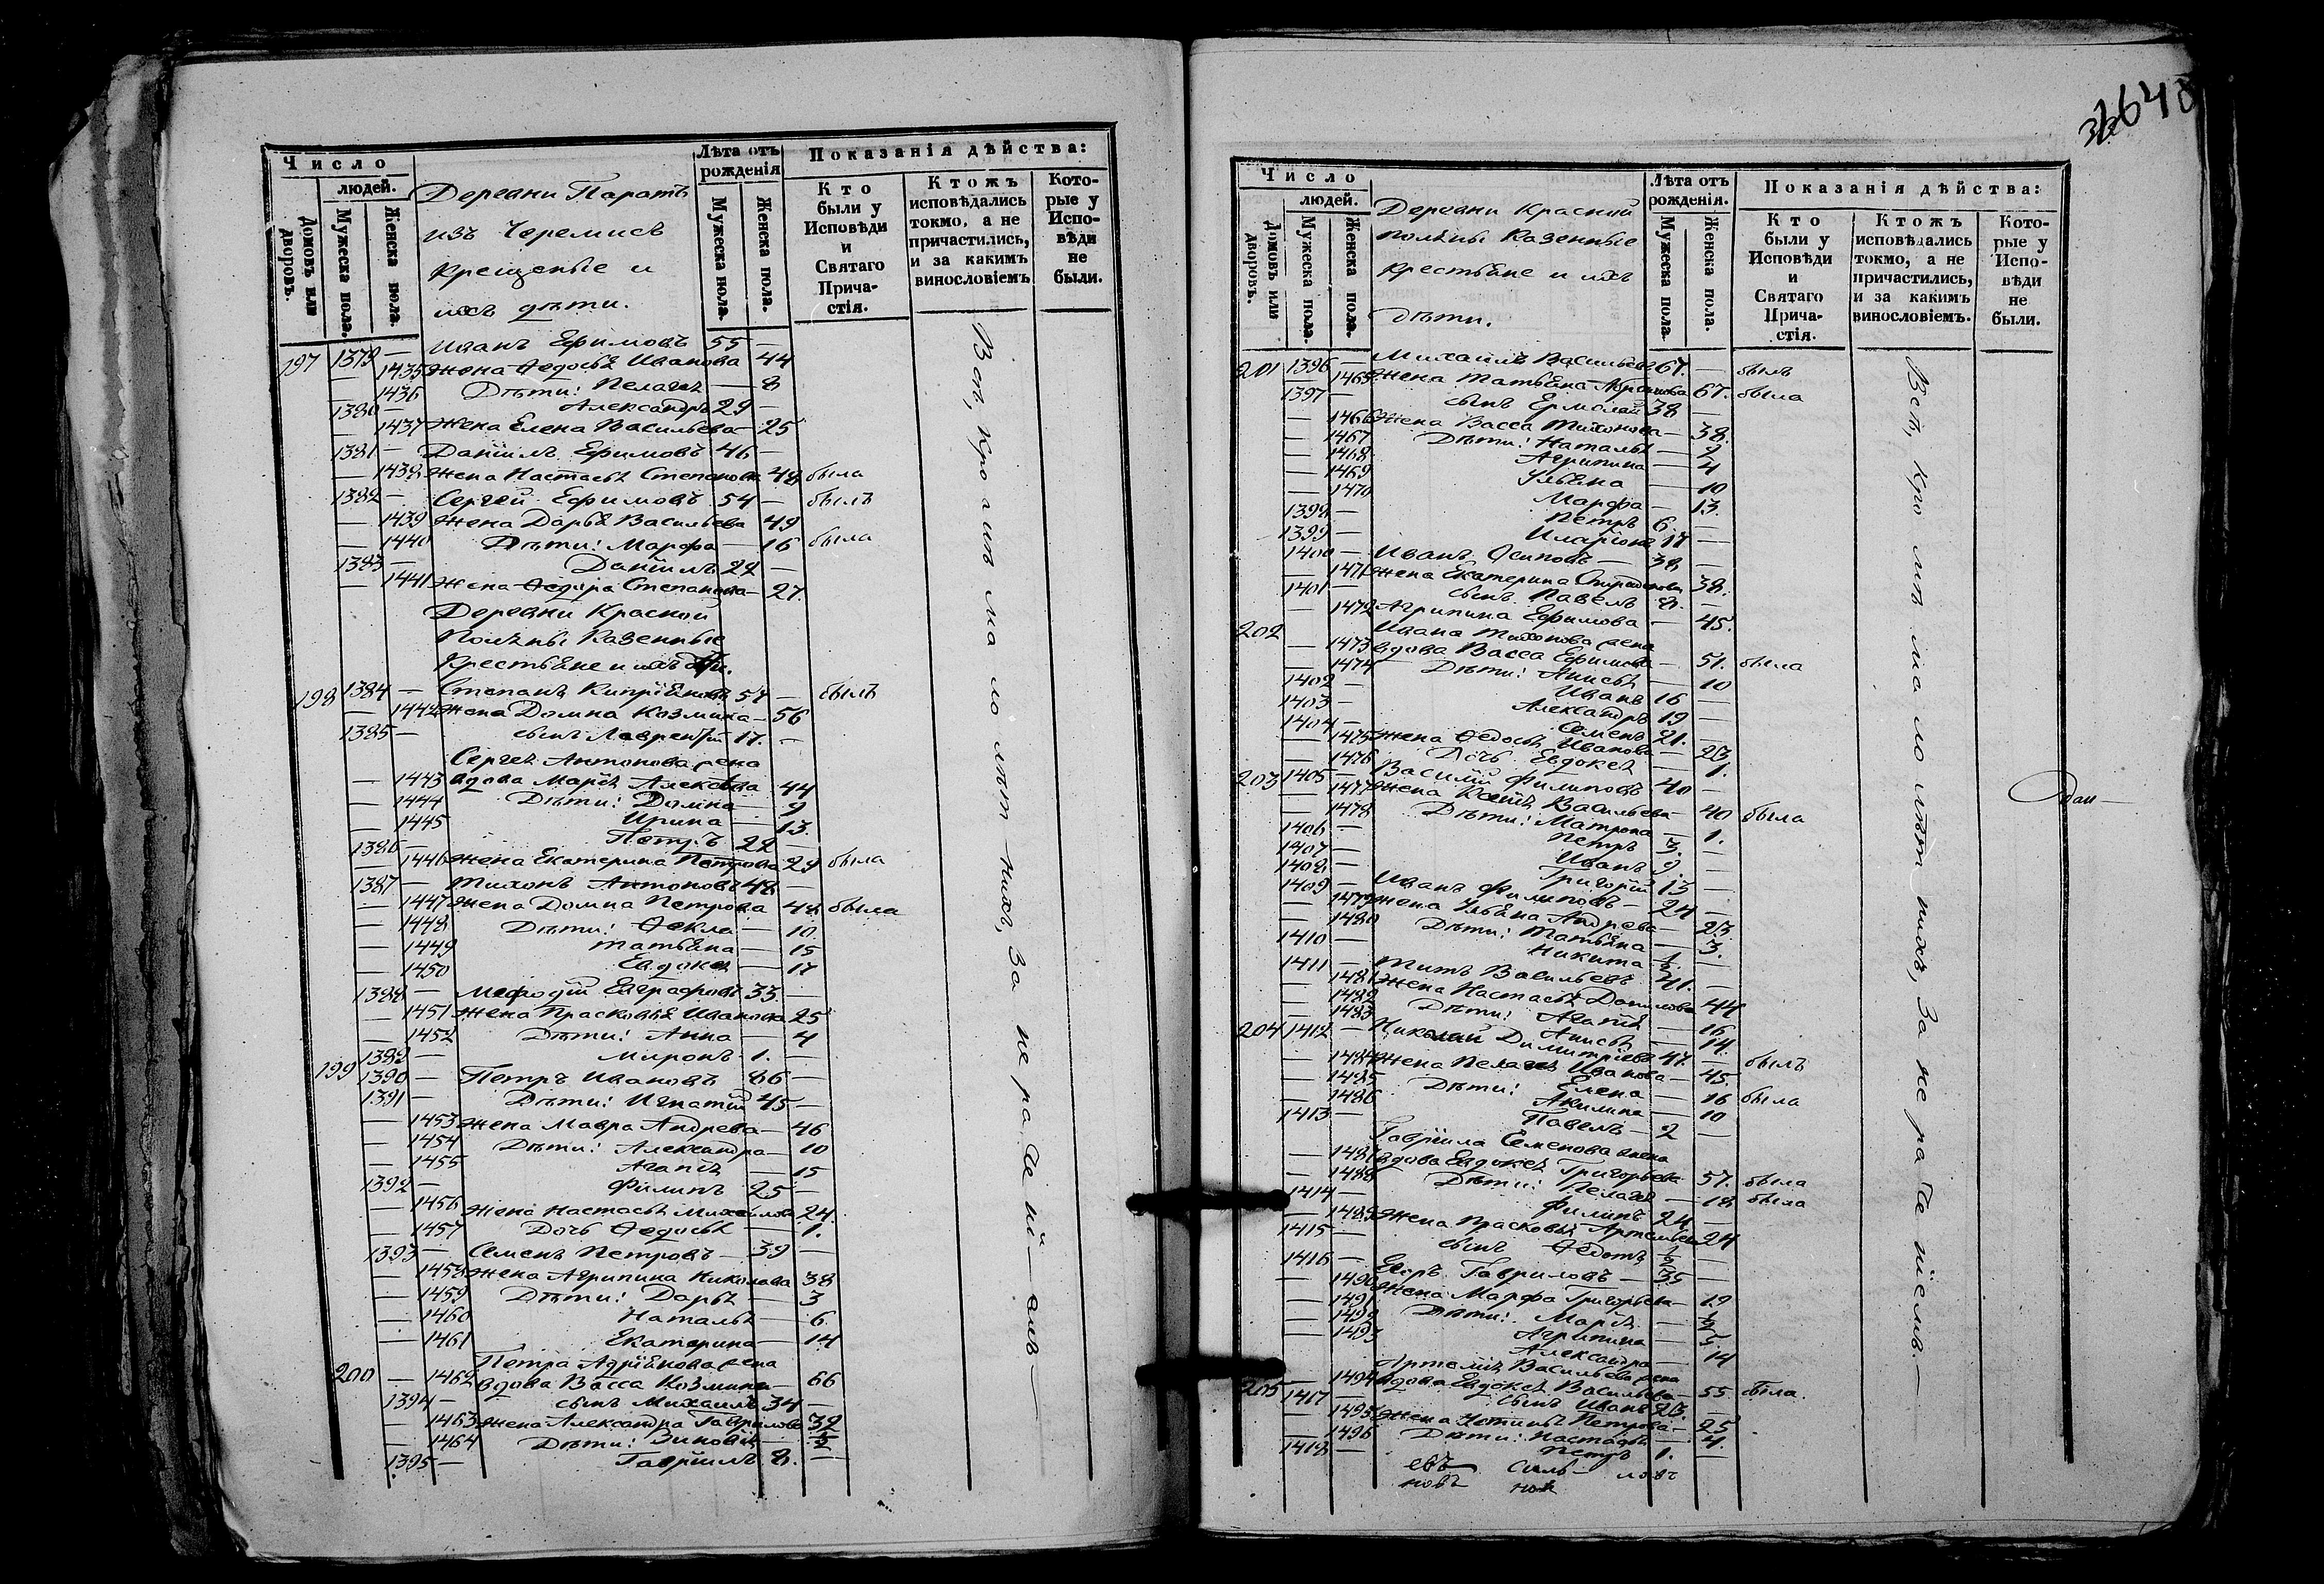 Число
людей.
Домовъ или дворовъ.
Мужеска пола.
Женска пола.
Деревни Паратъ
изъ Черемисъ
Крещеные и
ихъ дѣти.
Лѣта отъ рожденія
Мужеска пола.
Женска пола.
Показанія дѣйства:
Кто были у Исповѣди и Святаго Прича-стія.
Ктожъ исповѣдались токмо, а не причастились, и за какимъ винословіемъ
Кото-рые у Испо-вѣди не были.
197 1379 — Иванъ Ефимовъ 55 —
— 1435 Жена Ѳедосья Иванова 44
— 1436 Дѣти: Пелагея — 8
1380 — Александръ 29 —
— 1437 Жена Елена Васильева — 25
1381 — Даніилъ Ефимовъ 46 —
— 1438 Жена Настасья Степанова 48 была
1382 — Сергей Ефимовъ 54 — былъ
— 1439 Жена Дарья Васильева 49
— 1440 Дѣти: Марфа — 16 была
1383 — Даніилъ 22 —
— 1441 Жена Ѳедора Степанова — 27.
Деревни Красной
Поляны Казенные
Крестьяне и ихъ дѣти.
198 1384 — Степанъ Кипріяновъ 57 — былъ
— 1442 Жена Домна Козмина — 56
1385 — сынъ Лаврентій 17. —
Сергея Антонова жена
— 1443 вдова Марья Алексѣева 44
— 1444 Дѣти: Домна — 9
— 1445 Ирина — 13
1386 — Петръ 22 —
— 1446 Жена Екатерина Петрова 29 была
1387 — Тихонъ Антоновъ 48 —
— 1447 Жена Домна Петрова 48 была
— 1448 Дѣти: Ѳекла — 10
— 1449 Татьяна — 15
— 1450 Евдокея — 17
1388 — Меѳодій Евграфовъ 33 —
— 1451 Жена Прасковья Иванова 25
— 1452 Дѣти: Анна — 4
1389 — Миронъ 1. —
199 1390 — Петръ Ивановъ 86 —
1391 — Дѣти: Игнатій 45 —
— 1453 Жена Мавра Андрева — 46
— 1454 Дѣти: Александра — 10
— 1455 Агапія — 15
1392 — Филипъ 25 —
— 1456 Жена Настасья Михайлова 24.
— 1457 Дочь Ѳедосья — 1.
1393 — Семенъ Петровъ — 39 —
— 1458 Жена Агрипина Николаева 38
— 1459 Дѣти: Дарья — 3
— 1460 Наталья — 6
— 1461 Екатерина — 14
Петра Адріянова жена
200 — 1462 вдова Васса Козмина — 66
1394 — сынъ Михаилъ 34 —
— 1463 Жена Александра Гаврилова 32
— 1464 Дѣти: Зиновія — ½
1395 — Гавріилъ 8. —
Число
людей.
Домовъ или дворовъ.
Мужеска пола.
Женска пола.
Деревни Красной
поляны Казенные
крестьяне и ихъ
дѣти.
Лѣта отъ рожденія.
Мужеска пола.
Женска пола.
Показанія дѣйства:
Кто были у Исповѣди и Святаго Прича-стія.
Ктожъ исповѣдались токмо, а не причастились, и за какимъ винословіемъ.
Кото-рые у Испо-вѣди не были.
201 1396 — Михаилъ Васильевъ 67. — былъ
— 1465 Жена Татьяна Абрамова 67. была
1397 — сынъ Ермолай 38 —
— 1466 Жена Васса Тихонова — 38.
— 1467 Дѣти: Наталья — 2
— 1468 Агрипина — 4
— 1469 Ульяна — 10
— 1470 Марфа — 13.
1398 — Петръ 6. —
1399 — Иларіонъ 17 —
1400 — Иванъ Осиповъ — 38 —
— 1471 Жена Екатерина Спиридонова 38.
1401 — сынъ Павелъ 8. —
— 1472 Агрипина Ефимова — 45.
202 Ивана Тихонова жена
— 1473 вдова Васса Ефимова — 51. была
— 1474 Дѣти: Анисья — 10
1402 — Иванъ 16 —
1403 — Александръ 19 —
1404 — Семенъ 21. —
— 1475 Жена Ѳедосья Иванова — 23
— 1476 Дочь Евдокея — 1.
203 1405 — Василій Филиповъ 40 —
— 1477 Жена Ксенія Васильева — 40 была
— 1478 Дѣти: Матрона — 1.
1406 — Петръ 3. —
1407 — Иванъ 9. —
1408 — Григорій 13 —
1409 — Иванъ Филиповъ — 24 —
— 1479 Жена Ульяна Андрева — 23.
— 1480 Дѣти: Татьяна — 3.
1410 — Никита ½ —
1411 — Титъ Васильевъ 41. —
— 1481 Жена Настасья Данилова 44
— 1482 Дѣти: Агапія — 16
— 1483 Анисья — 14.
204 1412 — Николай Димитріевъ 47. — былъ
— 1484 Жена Пелагея Иванова — 45.
— 1485 Дѣти: Елена — 16 была
— 1486 Акилина — 10
1413 — Павелъ 2 —
Гавріила Семенова жена
— 1487 вдова Евдокея Григорьева 57. была
— 1488 Дѣти: Пелагея — 18 была
1414 — Филипъ 24 —
— 1489 Жена Прасковья Артемьева 24
1415 — сынъ Ѳедотъ ½ —
1416 — Егоръ Гавриловъ — 35 —
— 1490 Жена Марфа Григорьева — 19
— 1491 Дѣти: Марья — ½
— 1492 Агрипина — 5
— 1493 Александра — 14
Артемія Васильева жена
205 — 1494 вдова Евдокея Васильева — 55 была.
1417 — сынъ Иванъ 23. —
— 1495 Жена Устинья Петрова — 25
— 1496 Дѣти: Настасья — 4.
1418 — Петръ 1. —